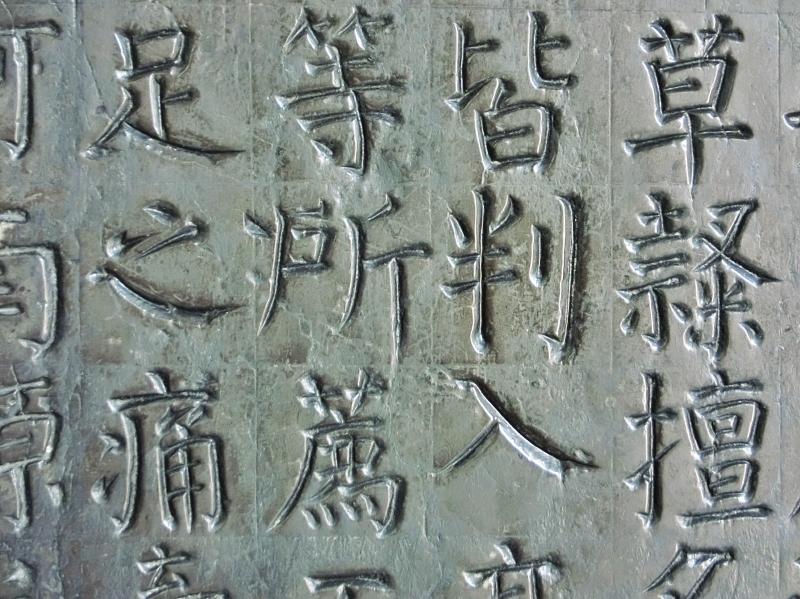 草隸擅
皆判入
等所薦
足之痛